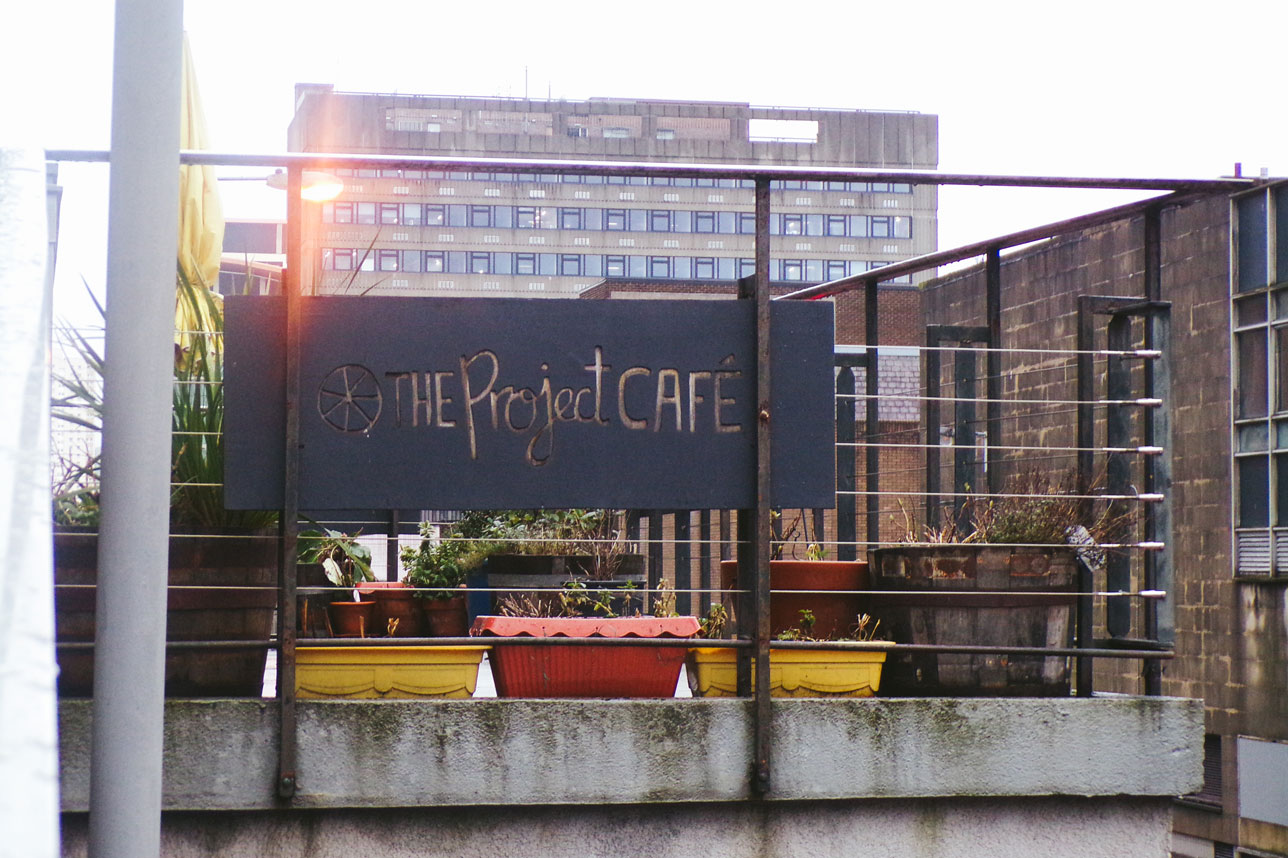 THE Project CAFÉ